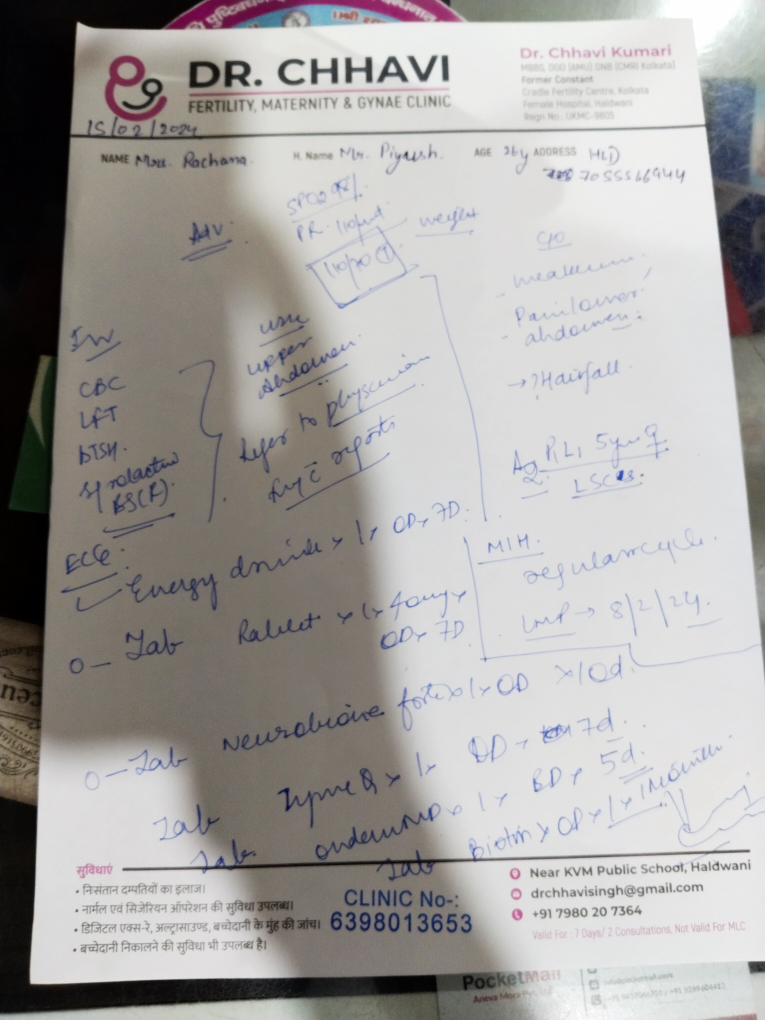 DR. CHHAVI
FERTILITY, MATERNITY & GYNAE CLINIC
Dr. Chhavi Kumari
MBBS, DGO (AMU) DNB (CMRI Kolkata)
Former Constant
Cradle Fertility Centre, Kolkata
Female Hospital, Haldwani
Regn No.: UKMC-9805
15/02/2024
NAME Mrs. Rachana. H. Name Mr. Piyush. AGE 26y ADDRESS HLD
7055566944
Adv.
SPO2 98%
PR. 110/mt
weight
110/70
c/o
- weakness.
- Pain lower abdomen.
→ ? Hairfall.
Inv
CBC
LFT
S.TSH.
S. prolactin
BS(F).
ECG.
USG
upper
Abdomen.
Refer to physician
R/v c̄ reports
P1L1 5yrs ♀
LSCS.
M/H.
regular cycle.
LMP → 8/2/24.
Energy drink x 1 x OD x 7D.
O- Tab Rablet x 1 x 40mg x
OD x 7D
O- Tab Neurobione forte x 1 x OD x 10d.
Tab Zyme Q x 1 x OD x 7d.
Tab. x 1 x BD x 5d.
Tab Biotin x OD x 1 x 1 Month.
सुविधाएं
• निसंतान दम्पतियों का इलाज।
• नार्मल एवं सिजेरियन ऑपरेशन की सुविधा उपलब्ध।
• डिजिटल एक्स-रे, अल्ट्रासाउण्ड, बच्चेदानी के मुंह की जांच।
• बच्चेदानी निकालने की सुविधा भी उपलब्ध है।
CLINIC No-:
6398013653
Near KVM Public School, Haldwani
drchhavisingh@gmail.com
+91 7980 20 7364
Valid For : 7 Days/ 2 Consultations, Not Valid For MLC
PocketMail